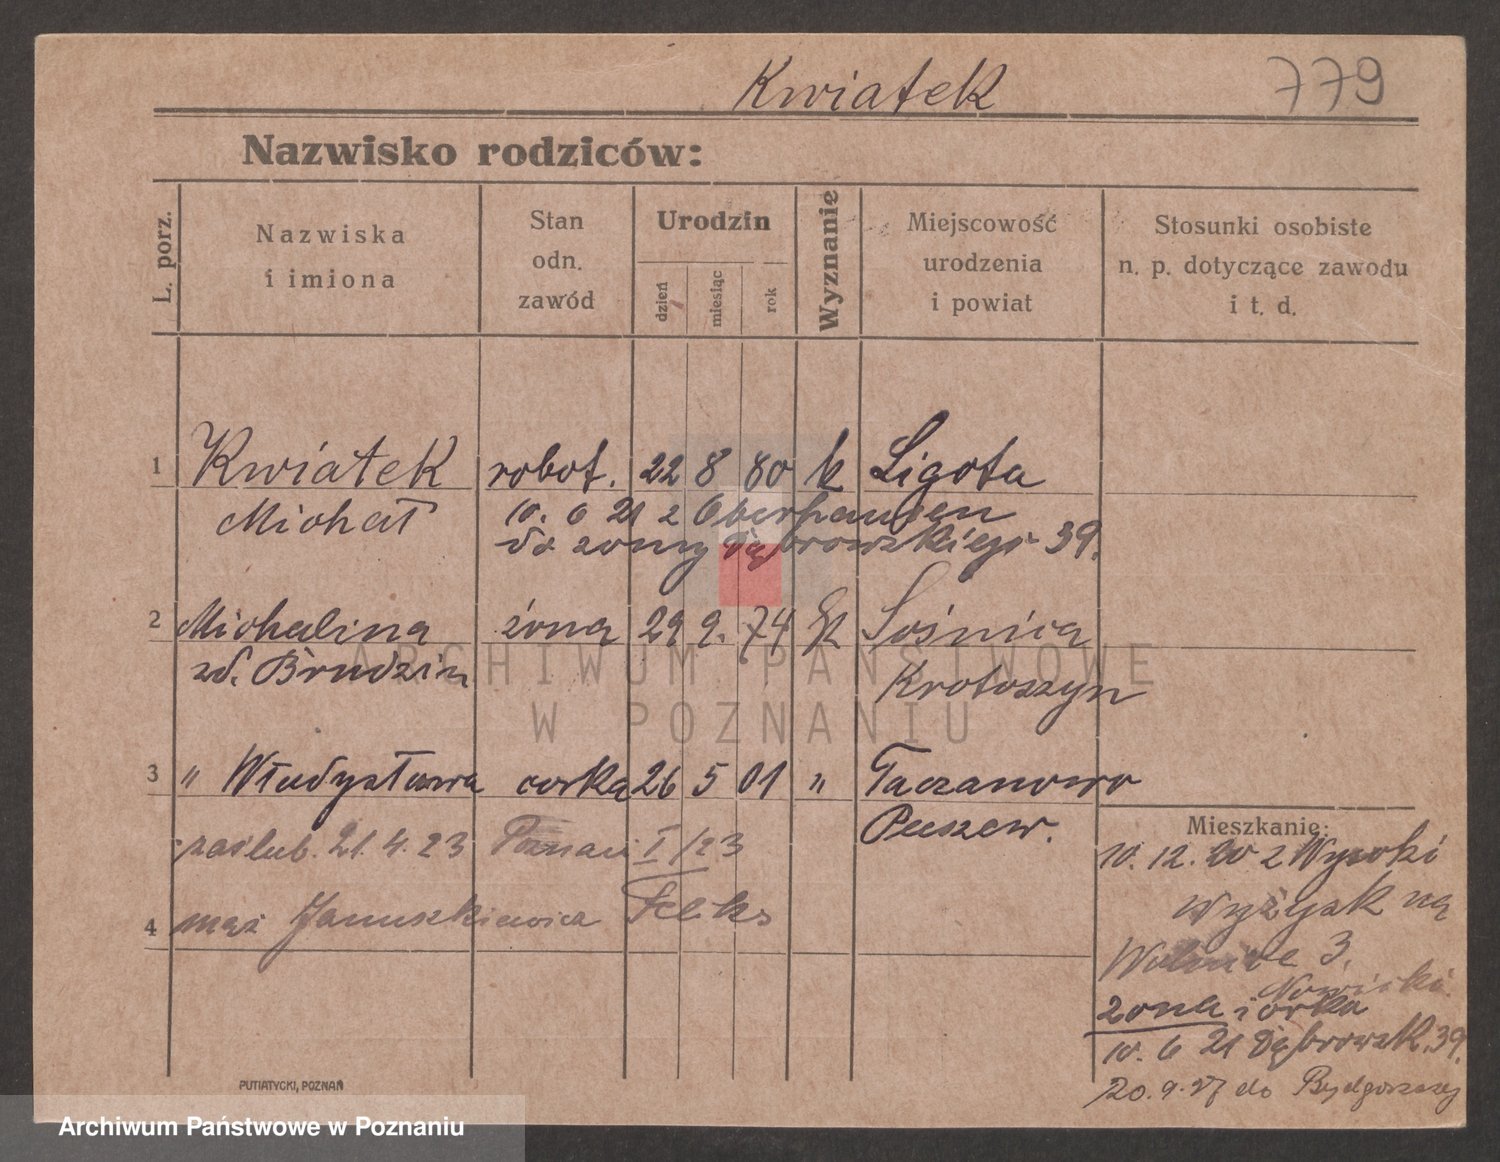 Kwiatek
779
Nazwisko rodziców:
L. porz.
Nazwiska
i imiona
Stan
odn.
zawód
Urodzin
dzień
miesiąc
rok
Wyznanie
Miejscowość
urodzenia
i powiat
Stosunki osobiste
n. p. dotyczące zawodu
i t. d.
1 Kwiatek robot. 22 8 80 k Ligota
Michał 10. 6 21 z Oberhausen
do żony Dąbrowskiego 39.
2 Michalina żona 29 9. 74 Sośnica
zd. Brudzin Krotoszyn
3 " Władysława corka 26 5 01 " Taczanowo
Pleszew.
zaślub. 21. 4. 23 Poznań I/23
4 mąż Januszkiewicz Feliks
Mieszkanie:
10. 12. 20 z Wysoki
Wyżysk na
3.
Nowicki
żona i corka
10. 6 21 Dąbrowsk. 39.
20. 9. 27 do Bydgoszczy
PUTIATYCKI, POZNAŃ
ARCHIWUM PAŃSTWOWE
W POZNANIU
Archiwum Państwowe w Poznaniu